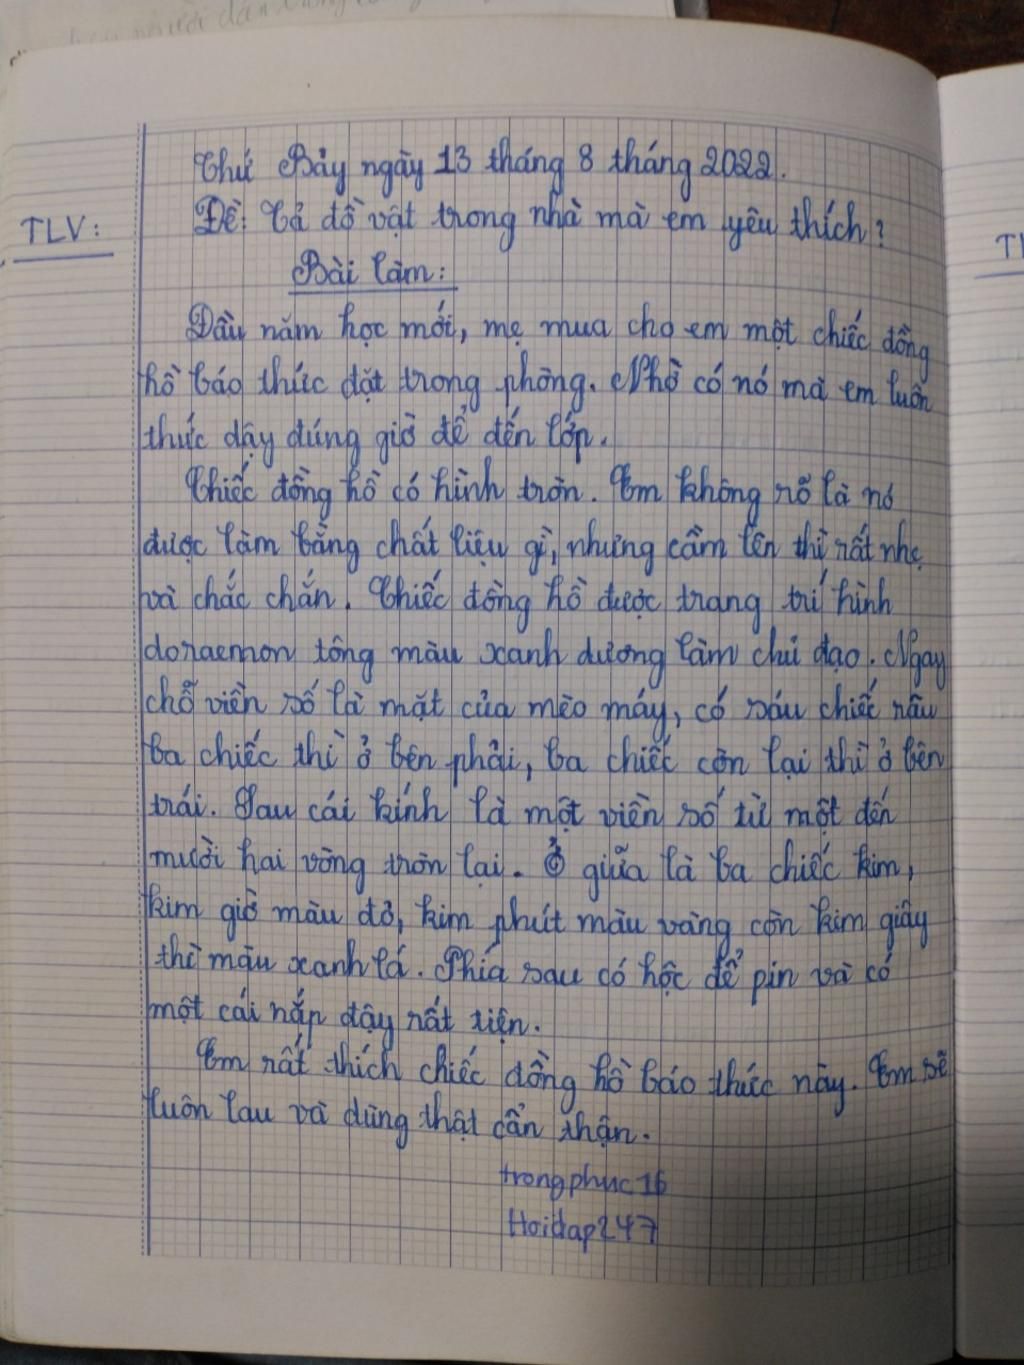 Thứ Bảy ngày 13 tháng 8 tháng 2022.
TLV:
Đề: Tả đồ vật trong nhà mà em yêu thích?
Bài làm:
Đầu năm học mới, mẹ mua cho em một chiếc đồng
hồ báo thức đặt trong phòng. Nhờ có nó mà em luôn
thức dậy đúng giờ để đến lớp.
Chiếc đồng hồ có hình tròn. Em không rõ là nó
được làm bằng chất liệu gì, nhưng cầm lên thì rất nhẹ
và chắc chắn. Chiếc đồng hồ được trang trí hình
doraemon tông màu xanh dương làm chủ đạo. Ngay
chỗ viền số là mặt của mèo máy, có sáu chiếc râu
ba chiếc thì ở bên phải, ba chiếc còn lại thì ở bên
trái. Sau cái kính là một viền số từ một đến
mười hai vòng tròn lại. Ở giữa là ba chiếc kim,
kim giờ màu đỏ, kim phút màu vàng còn kim giây
thì màu xanh lá. Phía sau có hộc để pin và có
một cái nắp đậy rất tiện.
Em rất thích chiếc đồng hồ báo thức này. Em sẽ
luôn lau và dùng thật cẩn thận.
trongphuc16
Hoidap247